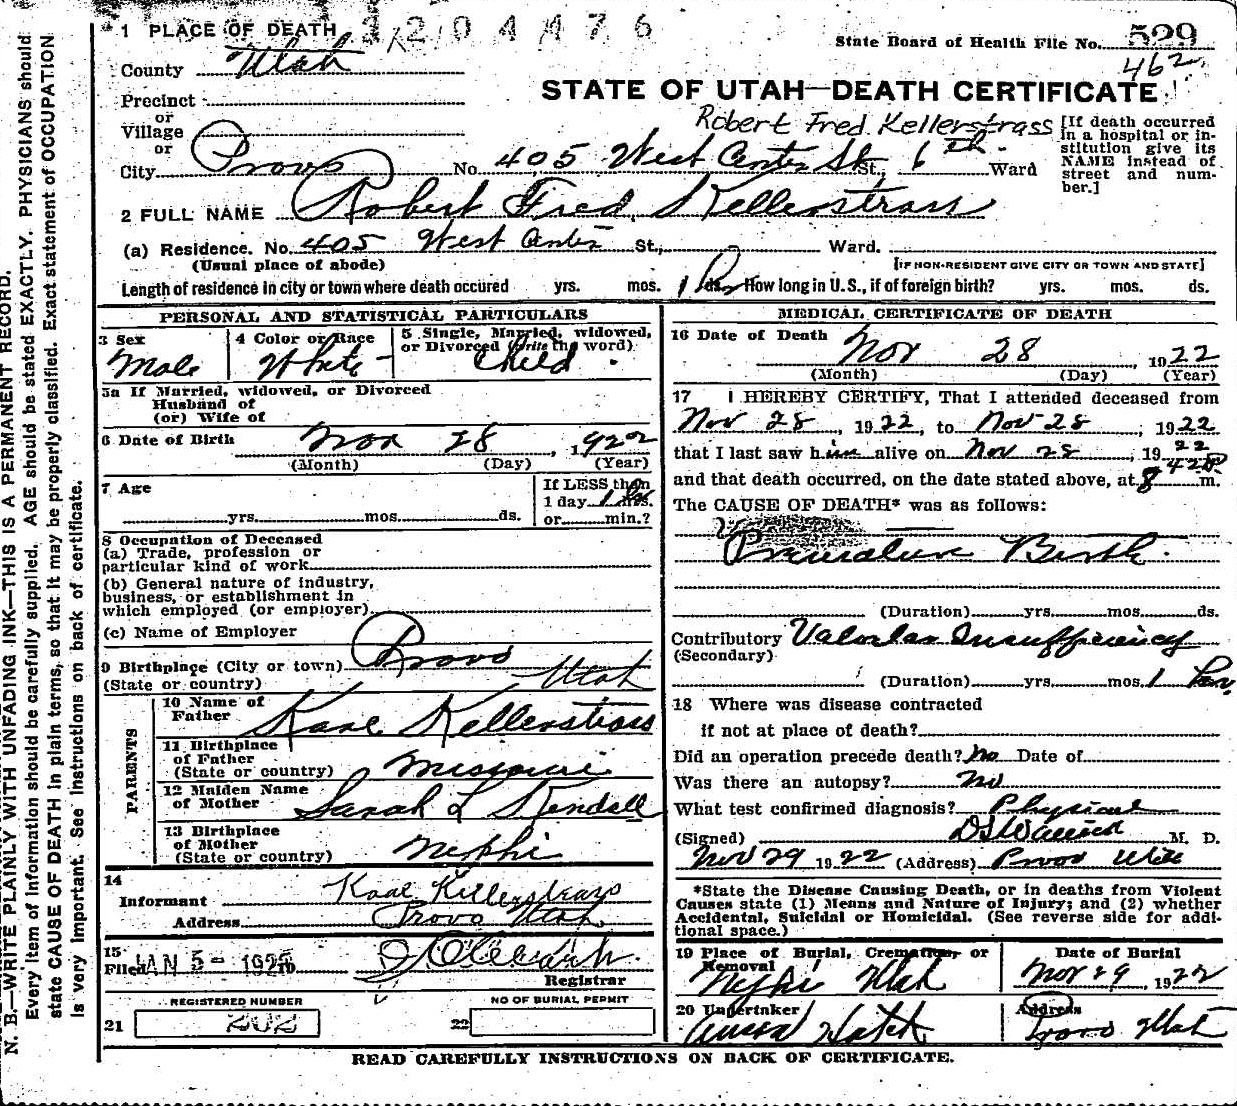 N. B.—WRITE PLAINLY WITH UNFADING INK—THIS IS A PERMANENT RECORD.
Every item of information should be carefully supplied. AGE should be stated EXACTLY. PHYSICIANS should
state CAUSE OF DEATH in plain terms, so that it may be properly classified. Exact statement of OCCUPATION
is very important. See instructions on back of certificate.
1 PLACE OF DEATH
State Board of Health File No. 529
462
County Utah
STATE OF UTAH—DEATH CERTIFICATE
Precinct
or
Village
or
Robert Fred Kellerstrass
[If death occurred
in a hospital or in-
stitution give its
NAME instead of
street and num-
ber.]
City Provo No. 405 West Center St St., 6th Ward
2 FULL NAME Robert Fred Kellerstrass
(a) Residence. No. 405 West Center St., Ward.
(Usual place of abode)
[IF NON-RESIDENT GIVE CITY OR TOWN AND STATE]
Length of residence in city or town where death occured yrs. mos. 1 ds. How long in U.S., if of foreign birth? yrs. mos. ds.
PERSONAL AND STATISTICAL PARTICULARS
3 Sex
Male
4 Color or Race
White
5 Single, Married, widowed,
or Divorced (write the word)
Child
5a If Married, widowed, or Divorced
Husband of
(or) Wife of
6 Date of Birth Nov 28, 1922
(Month) (Day) (Year)
7 Age
yrs. mos. ds.
If LESS than
1 day 1 hrs.
or min.?
8 Occupation of Deceased
(a) Trade, profession or
particular kind of work
(b) General nature of industry,
business, or establishment in
which employed (or employer)
(c) Name of Employer
9 Birthplace (City or town) Provo
(State or country) Utah
PARENTS
10 Name of
Father Karl Kellerstrass
11 Birthplace
of Father
(State or country) Missouri
12 Maiden Name
of Mother Sarah L Kendall
13 Birthplace
of Mother
(State or country) Nephi
14
Informant Karl Kellerstrass
Address Provo Utah
15
Filed JAN 5-
Registrar
REGISTERED NUMBER
21 202
NO OF BURIAL PERMIT
22
MEDICAL CERTIFICATE OF DEATH
16 Date of Death Nov 28, 1922
(Month) (Day) (Year)
17 I HEREBY CERTIFY, That I attended deceased from
Nov 28, 1922, to Nov 28, 1922
that I last saw him alive on Nov 28, 1922
and that death occurred, on the date stated above, at 8 42 P m.
The CAUSE OF DEATH* was as follows:
Premature Birth.
(Duration) yrs. mos. ds.
Contributory Valvular Insufficiency
(Secondary)
(Duration) yrs. mos. 1 hr.
18 Where was disease contracted
if not at place of death?
Did an operation precede death? No Date of
Was there an autopsy? No
What test confirmed diagnosis? Physical
(Signed) M. D.
Nov 29 1922 (Address) Provo Utah
*State the Disease Causing Death, or in deaths from Violent
Causes state (1) Means and Nature of Injury; and (2) whether
Accidental, Suicidal or Homicidal. (See reverse side for addi-
tional space.)
19 Place of Burial, Cremation, or
Removal
Nephi Utah
Date of Burial
Nov 29, 1922
20 Undertaker
Hatch
Address
Provo Utah
READ CAREFULLY INSTRUCTIONS ON BACK OF CERTIFICATE.